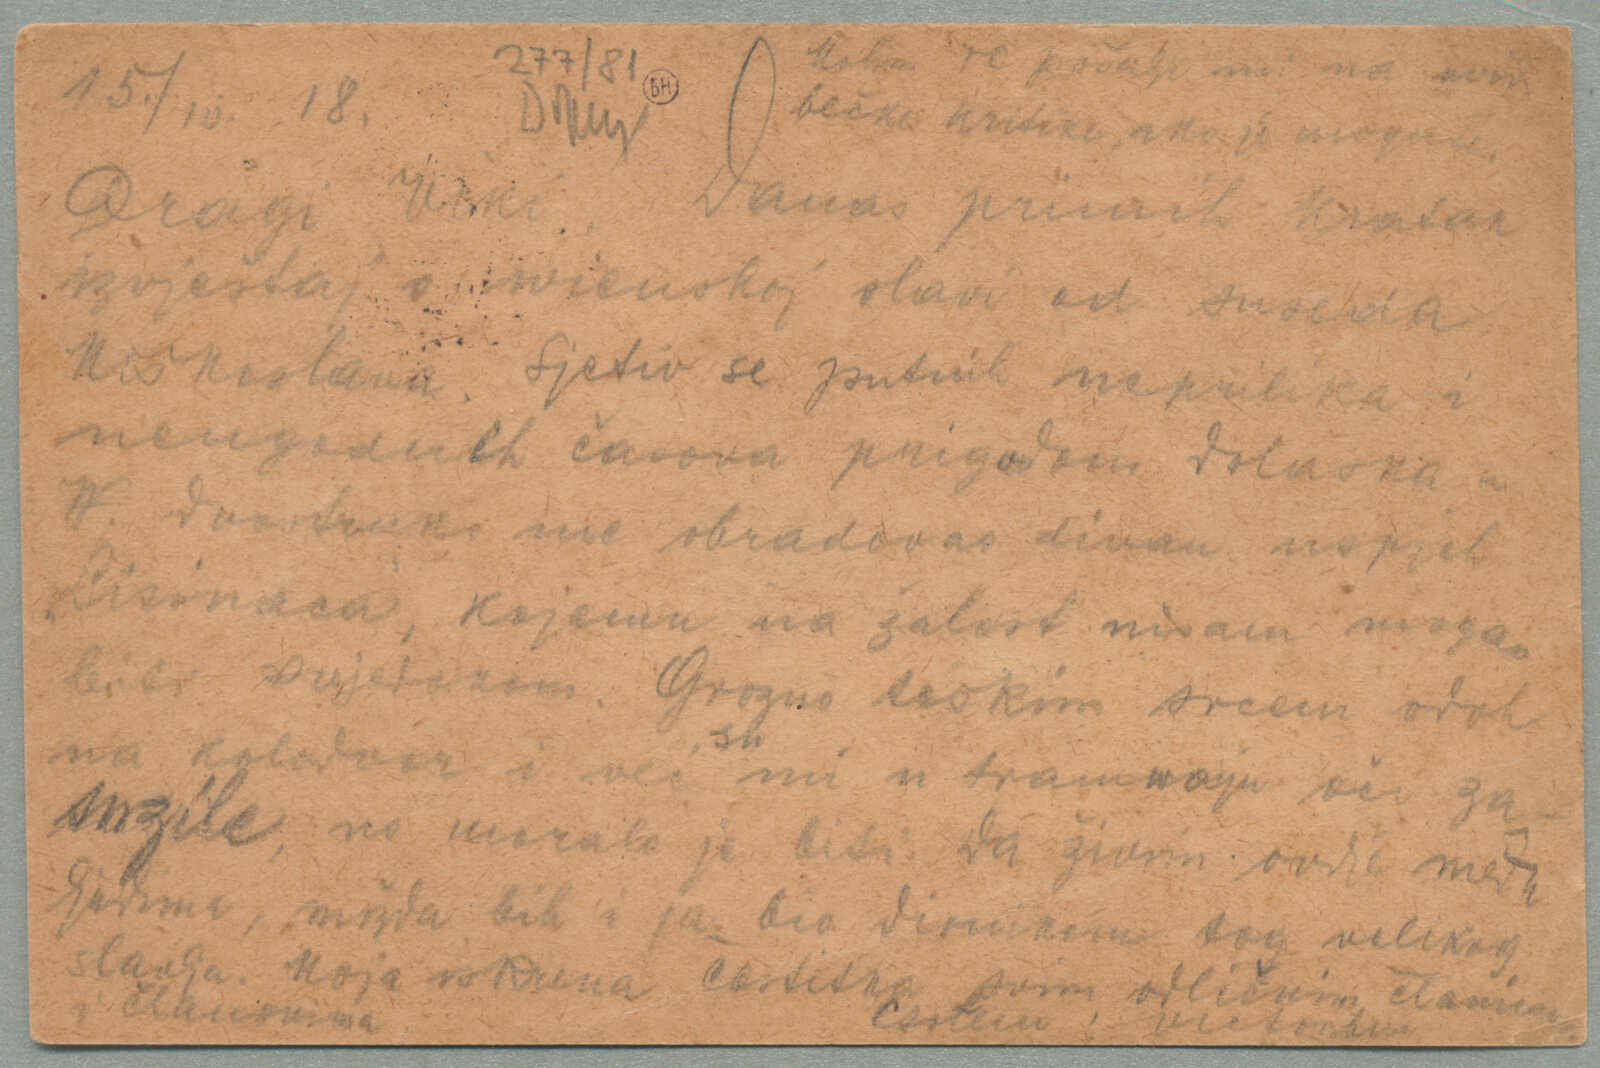 15./IV. 18.
277/81
БН
Molim Te pošalji mi na ovoj
bečke kritike, ako je moguće.
Dragi Viki! Danas primih kratak
izvještaj o wienskoj slavi od suseda
Miškoslava. Sjetio se putnih neprilika i
neugodnih časova prigodom dolaska u
W. Dvostruko me obradovao divan uspjeh
„Lisinaca", kojemu na žalost nisam mogao
biti svjedokom. Grozno teškim srcem odoh
na kolodvor i već su mi u tramwaju oči za-
suzile, no moralo je biti. Da živim ovdje među
ljudima, možda bih i ja bio dionikom tog velikog
slavlja. Moja iskrena čestitka svim odličnim članicama
i članovima